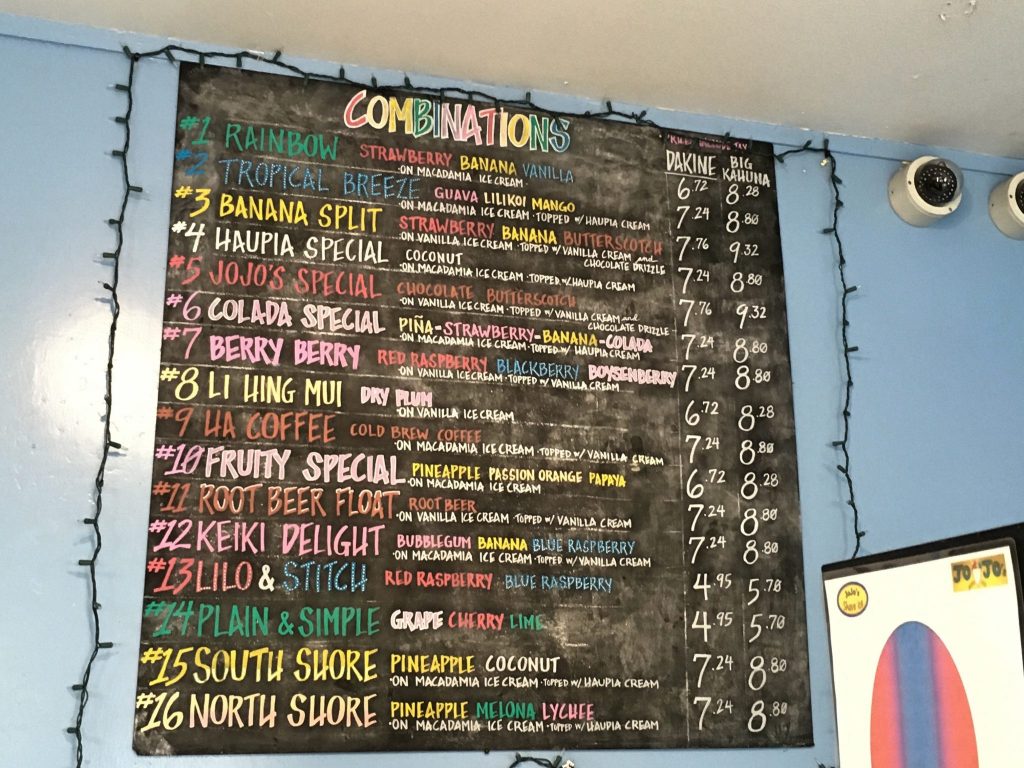 COMBINATIONS
PRICES INCLUDE TAX
DAKINE BIG KAHUNA
#1 RAINBOW STRAWBERRY BANANA VANILLA 6.72 8.28
·ON MACADAMIA ICE CREAM·
#2 TROPICAL BREEZE GUAVA LILIKOI MANGO 7.24 8.80
·ON MACADAMIA ICE CREAM · TOPPED W/ HAUPIA CREAM
#3 BANANA SPLIT STRAWBERRY BANANA BUTTERSCOTCH 7.76 9.32
·ON VANILLA ICE CREAM · TOPPED W/ VANILLA CREAM and
CHOCOLATE DRIZZLE
#4 HAUPIA SPECIAL COCONUT 7.24 8.80
·ON MACADAMIA ICE CREAM · TOPPED W/ HAUPIA CREAM
#5 JOJO'S SPECIAL CHOCOLATE BUTTERSCOTCH 7.76 9.32
·ON VANILLA ICE CREAM · TOPPED W/ VANILLA CREAM and
CHOCOLATE DRIZZLE
#6 COLADA SPECIAL PIÑA-STRAWBERRY-BANANA-COLADA 7.24 8.80
·ON MACADAMIA ICE CREAM · TOPPED W/ HAUPIA CREAM
#7 BERRY BERRY RED RASPBERRY BLACKBERRY BOYSENBERRY 7.24 8.80
·ON VANILLA ICE CREAM · TOPPED W/ VANILLA CREAM
#8 LI HING MUI DRY PLUM 6.72 8.28
·ON VANILLA ICE CREAM
#9 HA COFFEE COLD BREW COFFEE 7.24 8.80
·ON MACADAMIA ICE CREAM · TOPPED W/ VANILLA CREAM
#10 FRUITY SPECIAL PINEAPPLE PASSION ORANGE PAPAYA 6.72 8.28
·ON MACADAMIA ICE CREAM
#11 ROOT BEER FLOAT ROOT BEER 7.24 8.80
·ON VANILLA ICE CREAM · TOPPED W/ VANILLA CREAM
#12 KEIKI DELIGHT BUBBLEGUM BANANA BLUE RASPBERRY 7.24 8.80
·ON MACADAMIA ICE CREAM · TOPPED W/ VANILLA CREAM
#13 LILO & STITCH RED RASPBERRY BLUE RASPBERRY 4.95 5.70
#14 PLAIN & SIMPLE GRAPE CHERRY LIME 4.95 5.70
#15 SOUTH SHORE PINEAPPLE COCONUT 7.24 8.80
·ON MACADAMIA ICE CREAM · TOPPED W/ HAUPIA CREAM
#16 NORTH SHORE PINEAPPLE MELONA LYCHEE 7.24 8.80
·ON MACADAMIA ICE CREAM · TOPPED W/ HAUPIA CREAM
JoJo's
Shave Ice
JOJO's